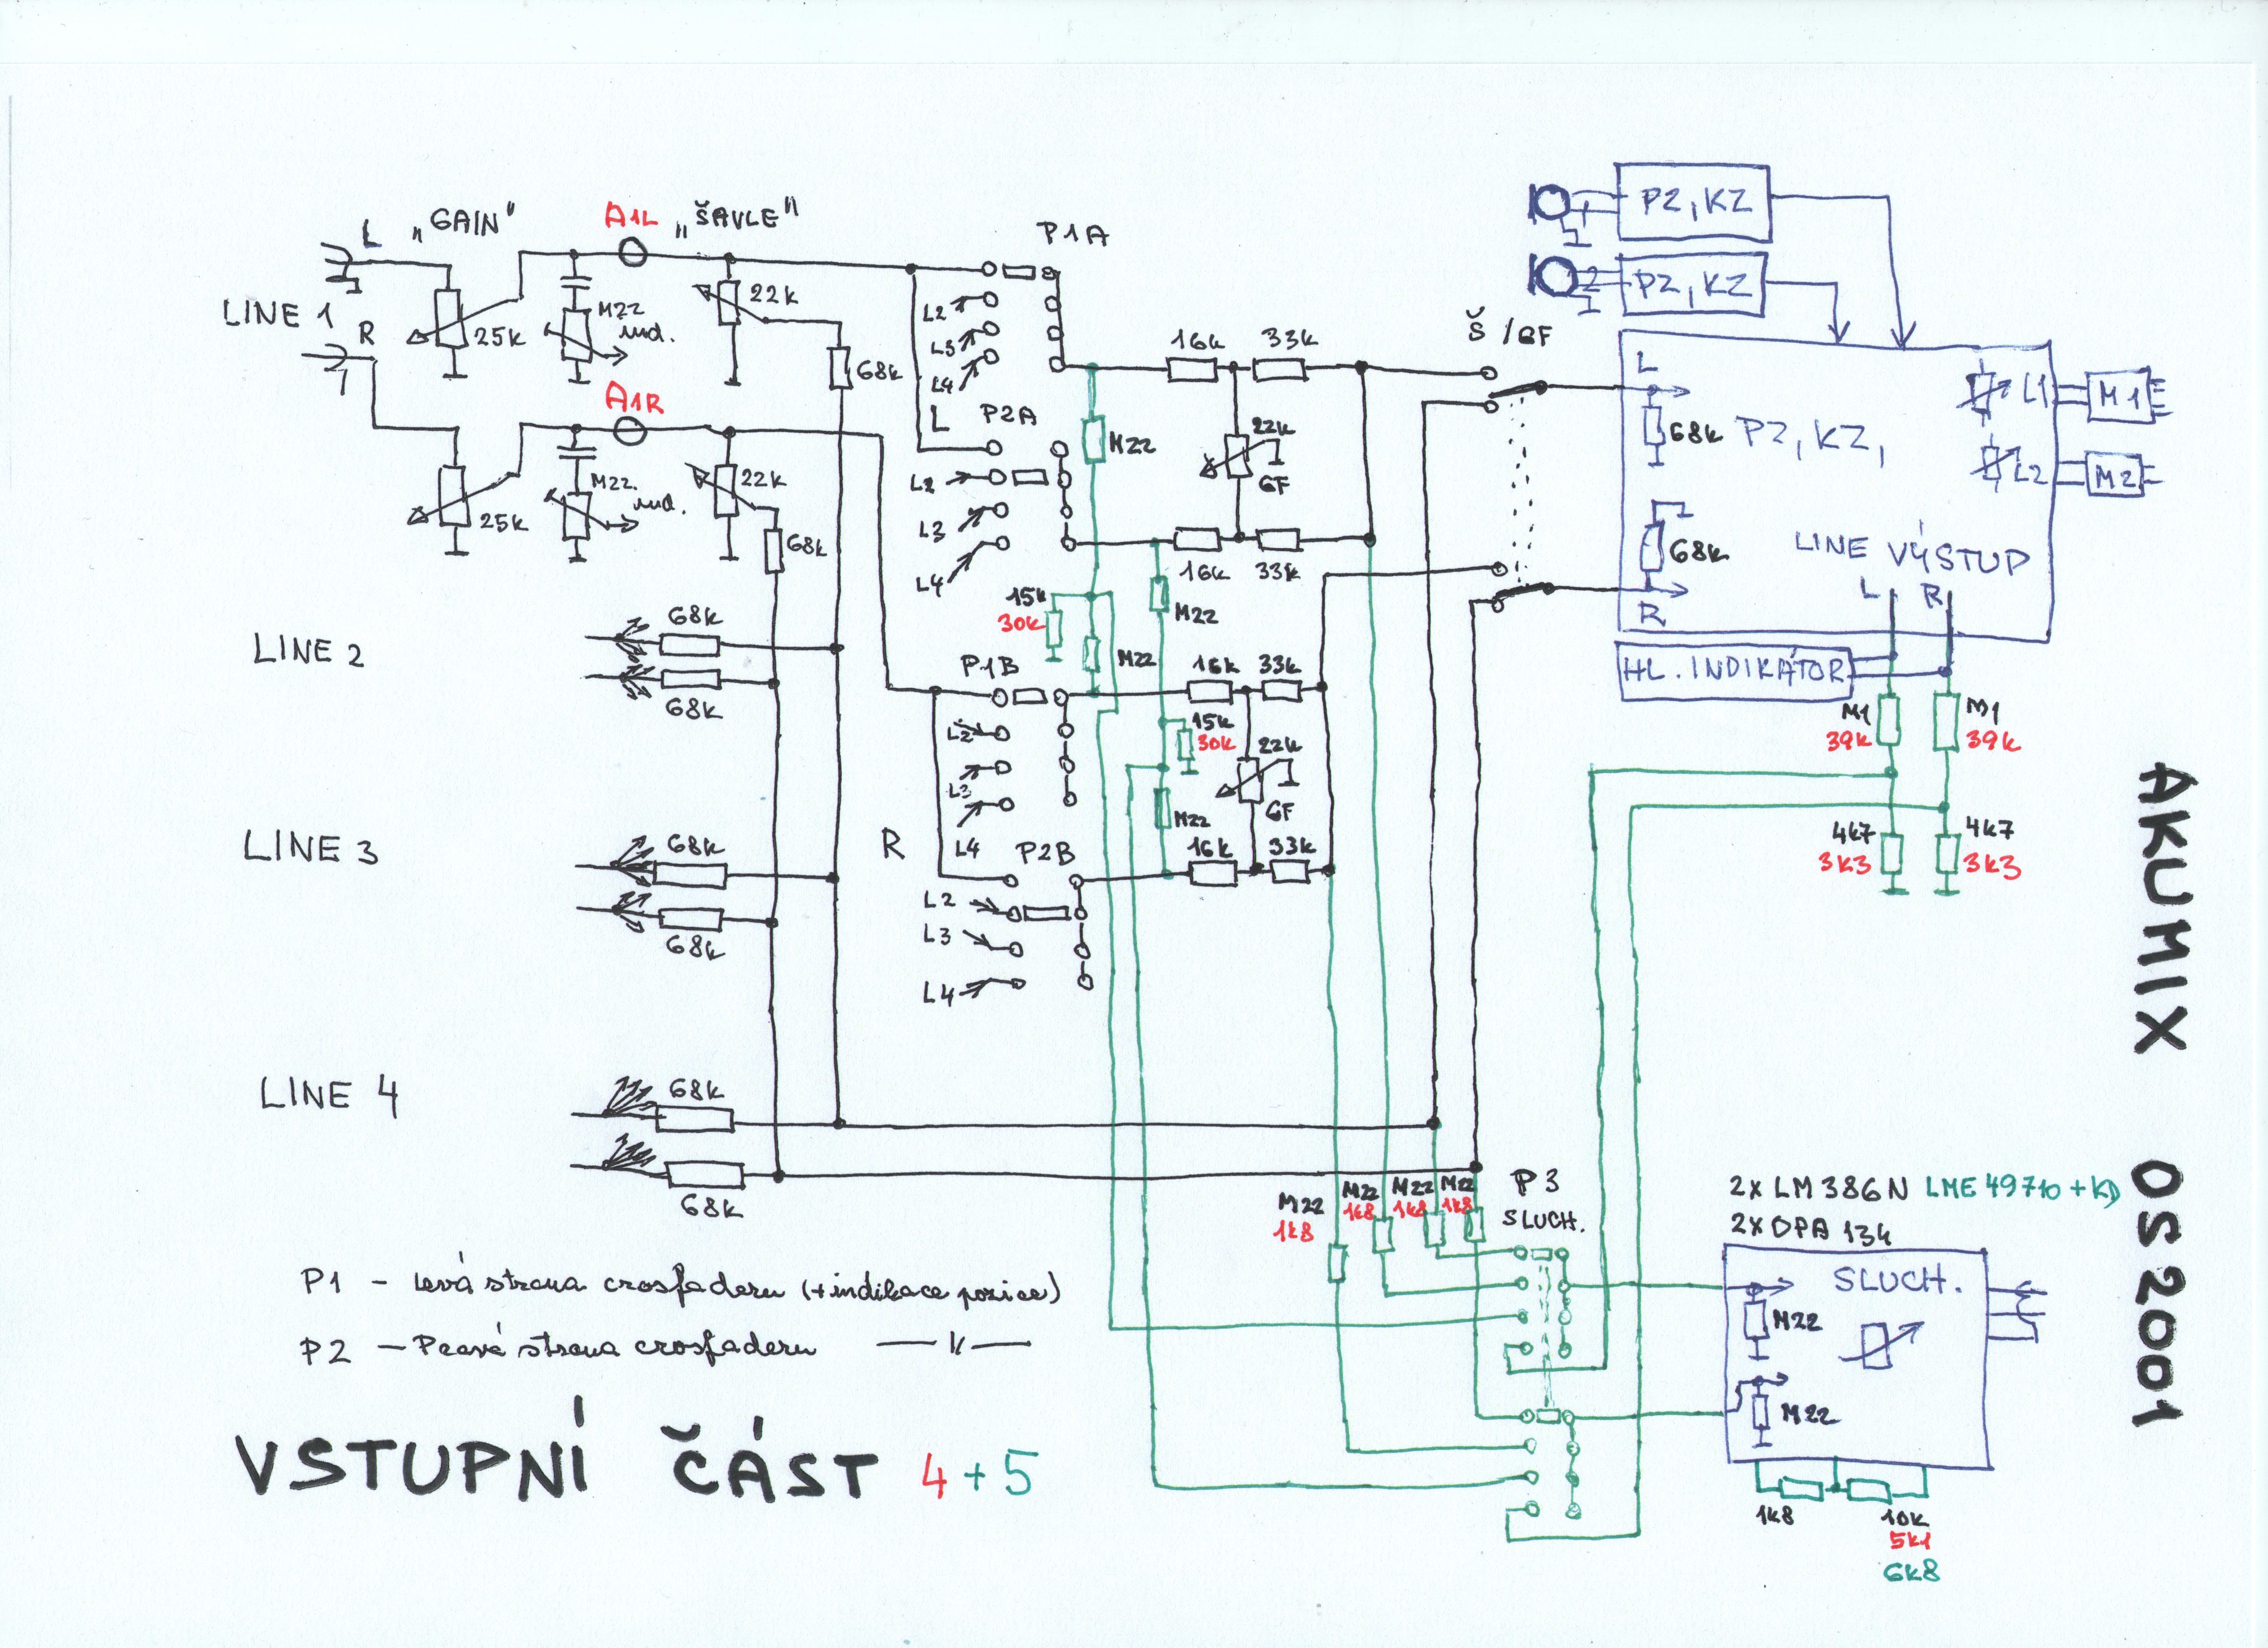 L
„GAIN"
A1L
„ŠAVLE"
P1A
LINE 1
R
25k
M22
ind.
22k
68k
L2
L3
L4
A1R
25k
M22
ind.
22k
68k
L
P2A
L2
L3
L4
16k
33k
M22
22k
GF
16k
33k
Š/GF
PZ, KZ
PZ, KZ
L
68k
PZ, KZ,
68k
R
L1
M1
L2
M2
LINE VÝSTUP
L
R
HL. INDIKÁTOR
M1
39k
M1
39k
4k7
3k3
4k7
3k3
LINE 2
68k
68k
15k
30k
M22
M22
P1B
L2
L3
L4
16k
33k
15k
30k
22k
GF
M22
R
P2B
16k
33k
L2
L3
L4
LINE 3
68k
68k
LINE 4
68k
68k
M22
1k8
M22
1k8
M22
1k8
M22
1k8
P3
SLUCH.
2x LM386N LME49710+KD
2x OPA 134
SLUCH.
M22
M22
1k8
10k
5k1
6k8
P1 - Levá strana crosfaderu (+indikace pozice)
P2 - Pravá strana crosfaderu —— 11 ——
VSTUPNÍ ČÁST 4+5
AKUMIX OS2001